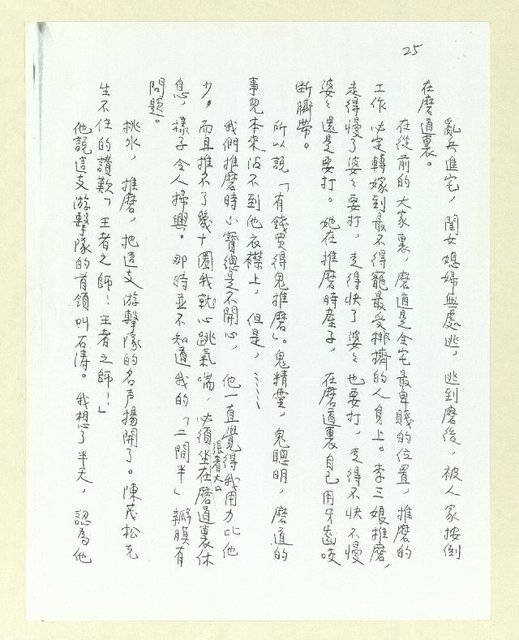 25
亂兵進宅,閨女媳婦無處逃,逃到磨後,被人家按倒
在磨道裏。
在從前的大家裏,磨道是全宅最卑賤的位置,推磨的
工作必定轉嫁到最不得寵最受排擠的人身上。李三娘推磨,
走得慢了婆婆要打,走得快了婆婆也要打,走得不快不慢
婆婆還是要打。她在推磨時產子,在磨道裏自己用牙齒咬
断臍帶。
所以說「有錢買得鬼推磨」。鬼精靈,鬼聰明,磨道的
事兒本來沒不到他衣襟上,但是,……
我們推磨時小寶總是不開心,他一直覺得我用力比他
少。而且推不了幾十圈我就心跳氣喘,必須坐在磨道裏張着大口休
息,樣子令人掃興。那時並不知道我的「二間半」瓣膜有
問題。
挑水,推磨,把這支游擊隊的名声揚開了。陳茂松先
生不住的讚歎「王者之師!王者之師!」
他說這支游擊隊的首領叫石濤。我想了半天,認為他